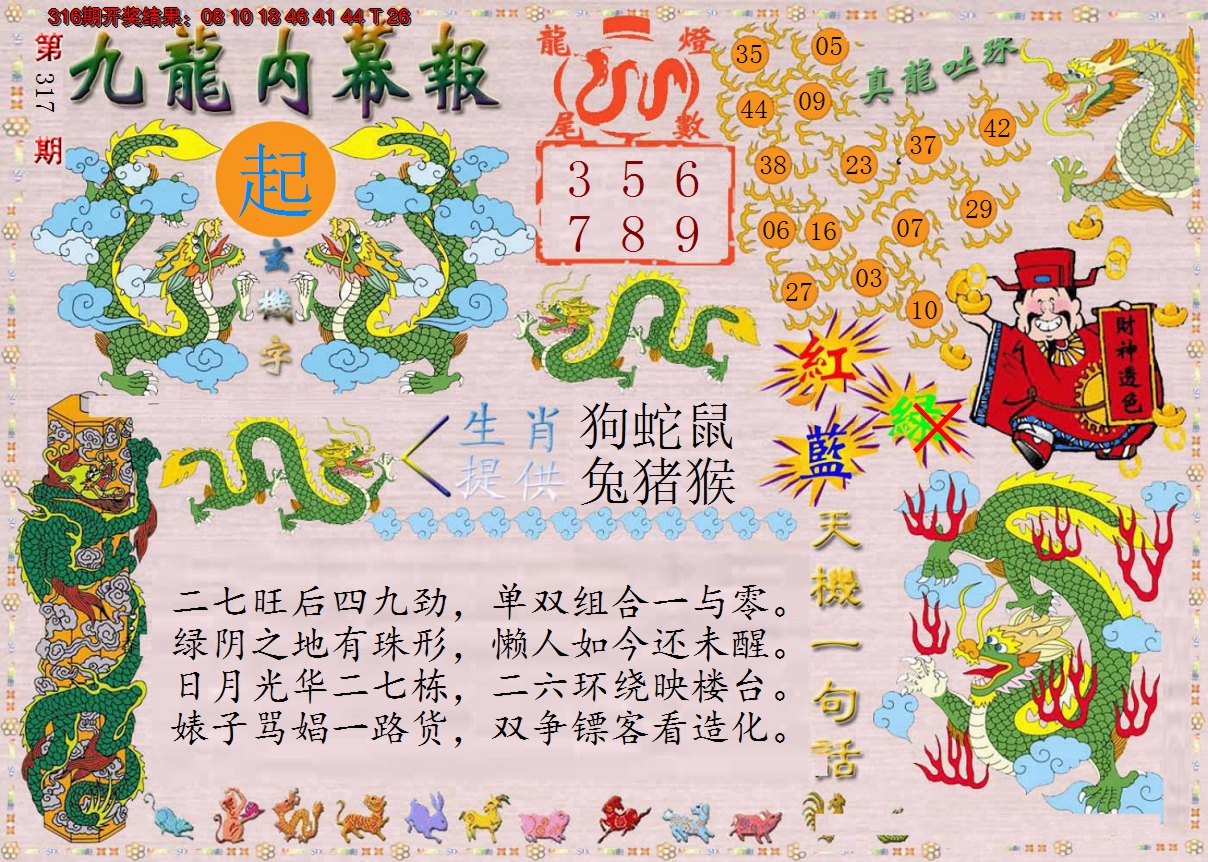 316期开奖结果：08 10 18 46 41 44 T 26
第317期
九龍内幕報
起
玄機字
龍燈尾數
3 5 6
7 8 9
真龍吐珠
35 05
44 09
37 42
38 23
29
06 16 07
27 03
10
財神透色
紅
綠
藍
生肖 狗蛇鼠
提供 兔猪猴
二七旺后四九劲，单双组合一与零。
绿阴之地有珠形，懒人如今还未醒。
日月光华二七栋，二六环绕映楼台。
婊子骂娼一路货，双争镖客看造化。
天機一句话